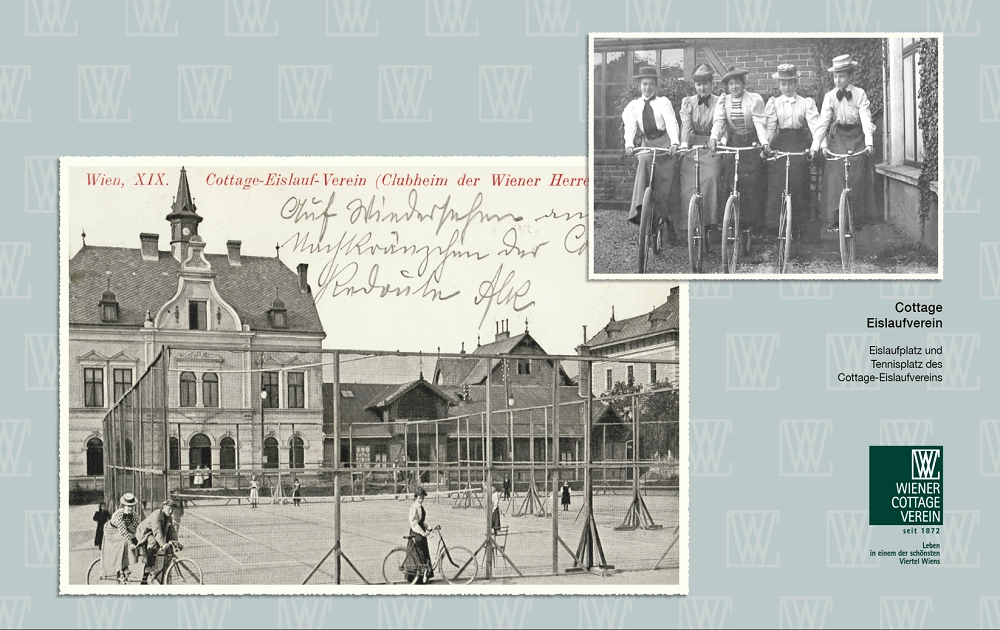 Wien, XIX. Cottage-Eislauf-Verein (Clubheim der Wiener Herre
Auf Wiedersehen am
Nachkränzchen der C
Redoute
Cottage
Eislaufverein
Eislaufplatz und
Tennisplatz des
Cottage-Eislaufvereins
WIENER
COTTAGE
VEREIN
seit 1872
Leben
in einem der schönsten
Viertel Wiens